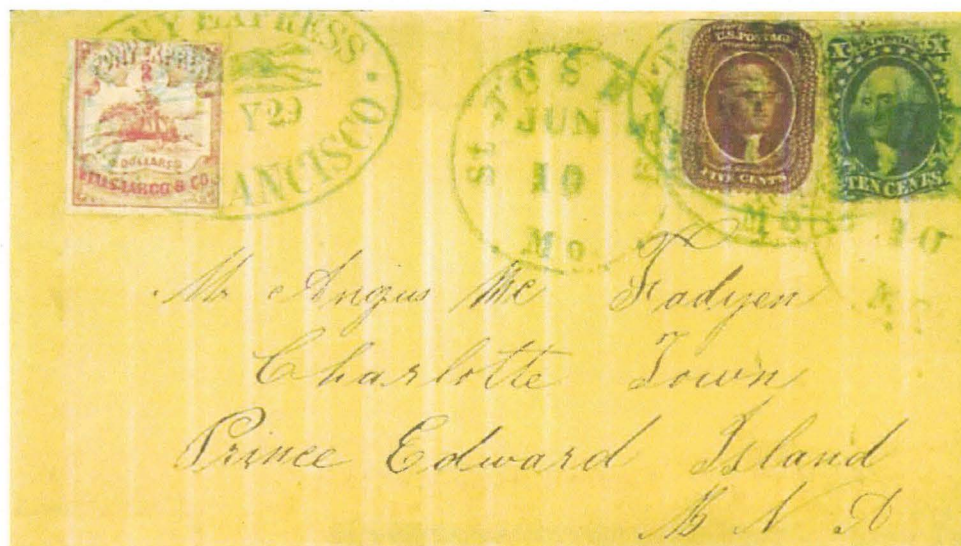 PONY EXPRESS
2
DOLLARS
WELLS FARGO & CO
NY EXPRESS
Y 29
ANCISCO
St JOSE
JUN
10
Mo
U.S. POSTAGE
FIVE CENTS
X X
TEN CENTS
Mo
10
Mr Angus Mc Fadyen
Charlotte Town
Prince Edward Island
B N A